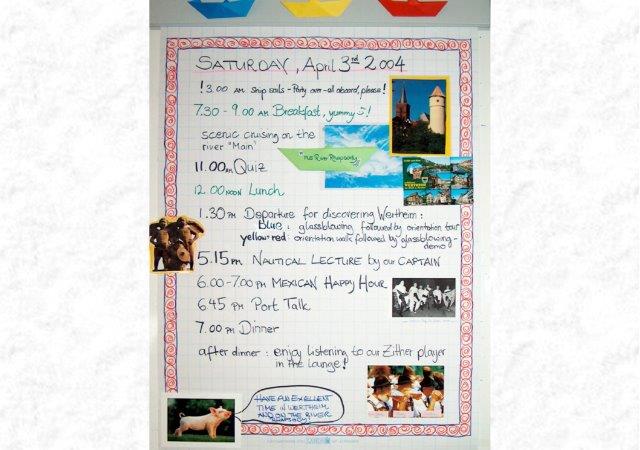 SATURDAY, April 3rd 2004
! 3.00 AM Ship sails - Party over - all aboard, please!
7.30 - 9.00 AM Breakfast, yummy!
scenic cruising on the
river "Main"
"MS River Rhapsody"
11.00 AM Quiz
12.00 NOON Lunch
WERTHEIM
1.30 PM Departure for discovering Wertheim:
Blue: glassblowing, followed by orientation tour
yellow+red: orientation walk, followed by glassblowing-
demo
5.15 PM NAUTICAL LECTURE by our CAPTAIN
6.00-7.00 PM MEXICAN HAPPY HOUR
6.45 PM Port Talk
7.00 PM Dinner
after dinner: enjoy listening to our Zither player
in the lounge!
HAVE AN EXELLENT
TIME IN WERTHEIM
AND ON THE RIVER
RHAPSODY!